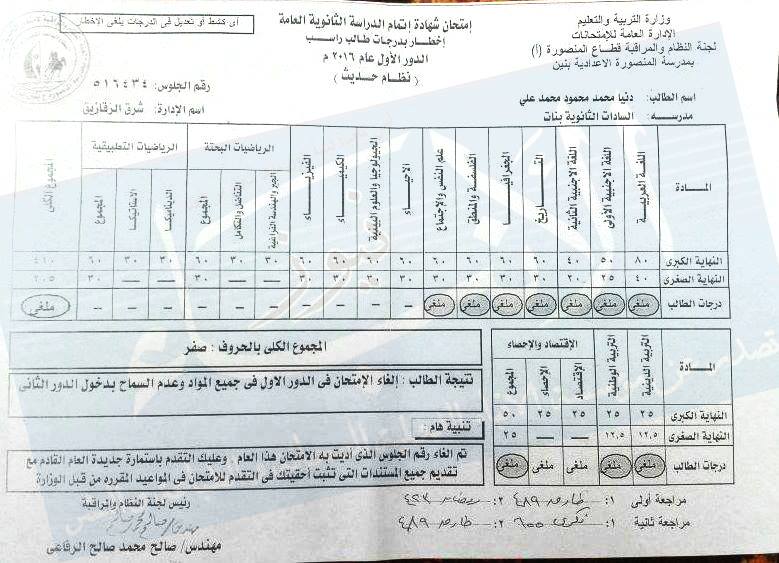 وزارة التربية والتعليم
الإدارة العامة للإمتحانات
لجنة النظام والمراقبة قطاع المنصورة (أ)
بمدرسة المنصورة الاعدادية بنين
إمتحان شهادة إتمام الدراسة الثانوية العامة
إخطار بدرجات طالب راسب
الدور الأول عام ٢٠١٦ م
( نظام حديث )
أى كشط أو تعديل فى الدرجات يلغى الاخطار
رقم الجلوس: ٥١٦٤٣٤
اسم الإدارة: شرق الزقازيق
اسم الطالب: دنيا محمد محمود محمد علي
مدرسه: السادات الثانوية بنات
المادة اللغة العربية اللغة الاجنبية الأولى اللغة الاجنبية الثانية التاريخ الجغرافيا الفلسفة والمنطق علم النفس والإجتماع الاحياء الجيولوجيا والعلوم البيئية الكيمياء الفيزياء الرياضيات البحتة الرياضيات التطبيقية المجموع الكلى
الجبر والهندسة الفراغية التفاضل والتكامل المجموع الديناميكا الاستاتيكا المجموع
النهاية الكبرى ٨٠ ٥٠ ٤٠ ٦٠ ٦٠ ٦٠ ٦٠ ٦٠ ٦٠ ٦٠ ٦٠ ٣٠ ٣٠ ٦٠ ٣٠ ٣٠ ٦٠ ٤١٠
النهاية الصغرى ٤٠ ٢٥ ٢٠ ٣٠ ٣٠ ٣٠ ٣٠ ٣٠ ٣٠ ٣٠ ٣٠ — — ٣٠ — — ٣٠ ٢٠٥
درجات الطالب ملغى ملغى ملغى ملغى ملغى ملغى ملغى – – – – – – – – – – ملغى
المادة التربية الدينية التربية الوطنية الإقتصاد والإحصاء
الإقتصاد الإحصاء المجموع
النهاية الكبرى ٢٥ ٢٥ ٢٥ ٢٥ ٥٠
النهاية الصغرى ١٢,٥ ١٢,٥ — — ٢٥
درجات الطالب ملغى ملغى ملغى ملغى ملغى
المجموع الكلى بالحروف : صفر
نتيجة الطالب : إلغاء الإمتحان فى الدور الاول فى جميع المواد وعدم السماح بدخول الدور الثانى
تنبية هام :
تم الغاء رقم الجلوس الذى أديت به الامتحان هذا العام وعليك التقدم باستمارة جديدة العام القادم مع
تقديم جميع المستندات التى تثبت أحقيتك فى التقدم للإمتحان فى المواعيد المقرره من قبل الوزارة
مراجعة أولى ١: طارق ٤٨٩ ٢: ٤٢٣
مراجعة ثانية ١: ٦٠٠ ٢: طارق ٤٨٩
رئيس لجنة النظام والمراقبة
مهندس/ صالح محمد صالح الرفاعى